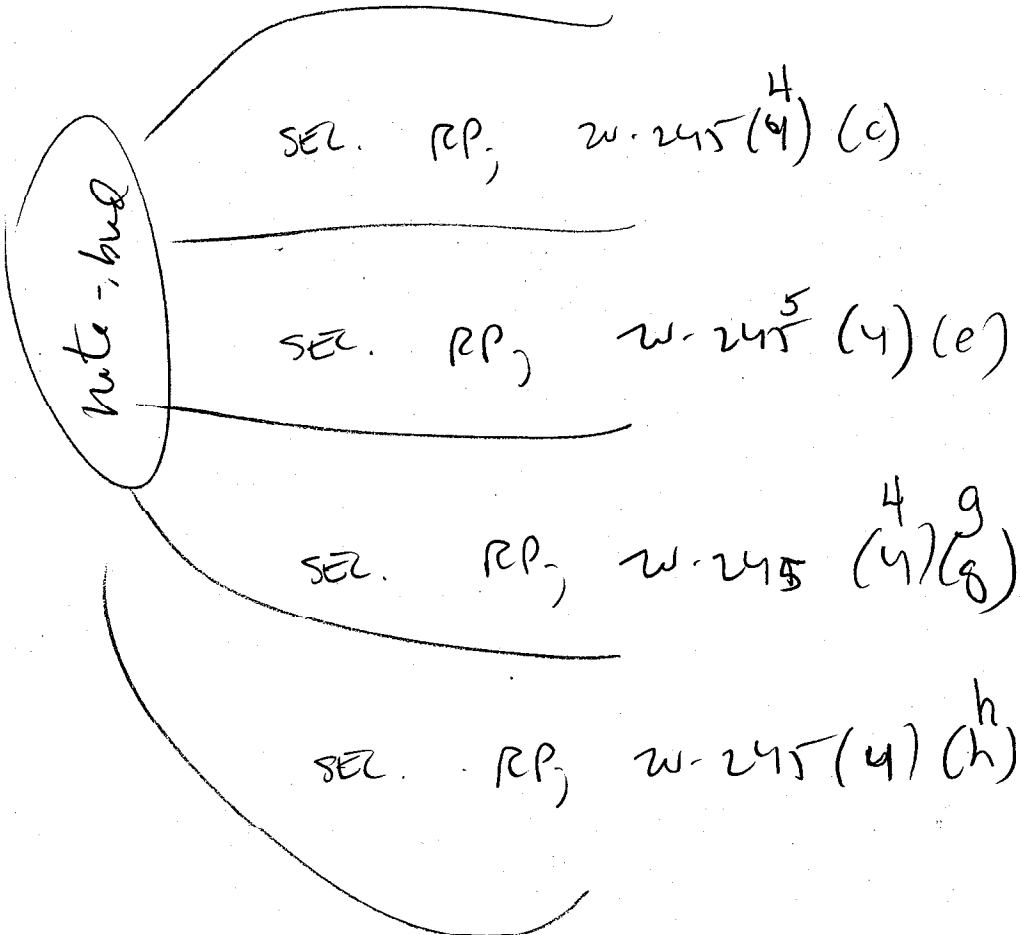 note-, bud
4
SEC. RP; 20.245 (4) (c)
5
SEC. RP; 20.245 (4) (e)
4 g
SEC. RP; 20.245 (4) (g)
h
SEC. RP; 20.245 (4) (h)